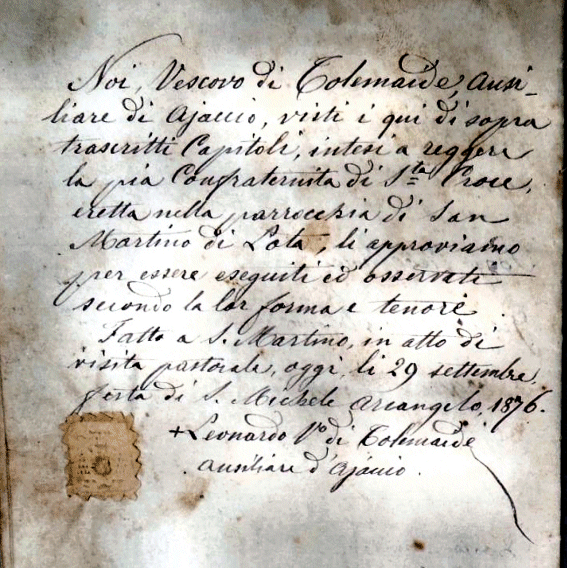 Noi, Vescovo di Tolemaide, Ausi-
liare di Ajaccio, visti i qui di sopra
trascritti Capitoli, intesi a reggere
la pia Confraternita di S.ta Croce,
eretta nella parrocchia di San
Martino di Lota, li approviamo
per essere eseguiti ed osservati
secondo la lor forma e tenore.
Fatto a S. Martino, in atto di
visita pastorale, oggi, li 29 settembre,
festa di S. Michele Arcangelo, 1876.
+ Leonardo Vo di Tolemaide
Ausiliare d'Ajaccio.